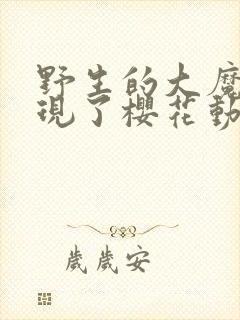 野生的大魔
現了櫻花動
歲歲安